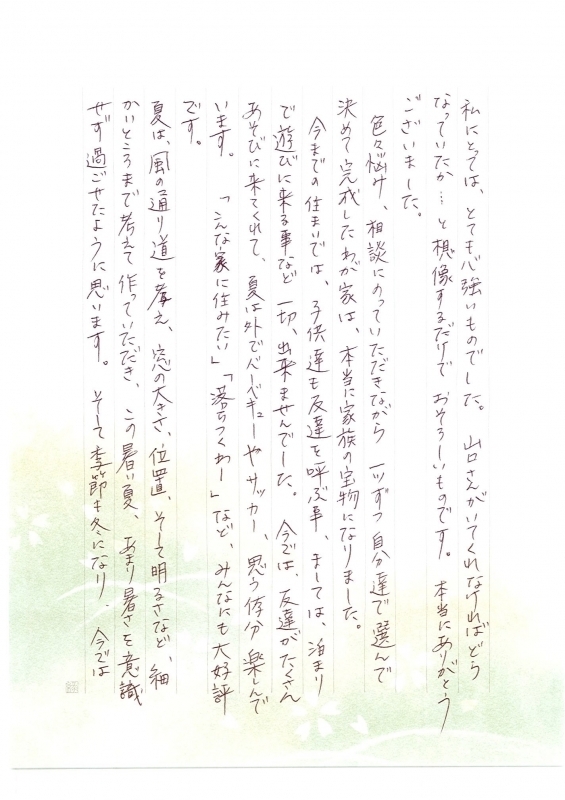 私にとっては、とても心強いものでした。 山口さんがいてくれなければどう
なっていたか…と想像するだけで おそろしいものです。 本当にありがとう
ございました。
色々悩み、相談にのっていただきながら 一ツずつ自分達で選んで
決めて完成したわが家は、本当に家族の宝物になりました。
今までの住まいでは、子供達も友達を呼ぶ事、ましては、泊まり
で遊びに来る事など一切、出来ませんでした。 今では、友達がたくさん
あそびに来てくれて、夏は外でバーベキューやサッカー、思う存分 楽しんで
います。 「こんな家に住みたい」「落ちつくわー」など、みんなにも大好評
です。
夏は、風の通り道を考え、窓の大きさ、位置、そして明るさなど、細
かいところまで考えて作っていただき、この暑い夏、あまり暑さを意識
せず過ごせたように思います。 そして季節も冬になり、今では